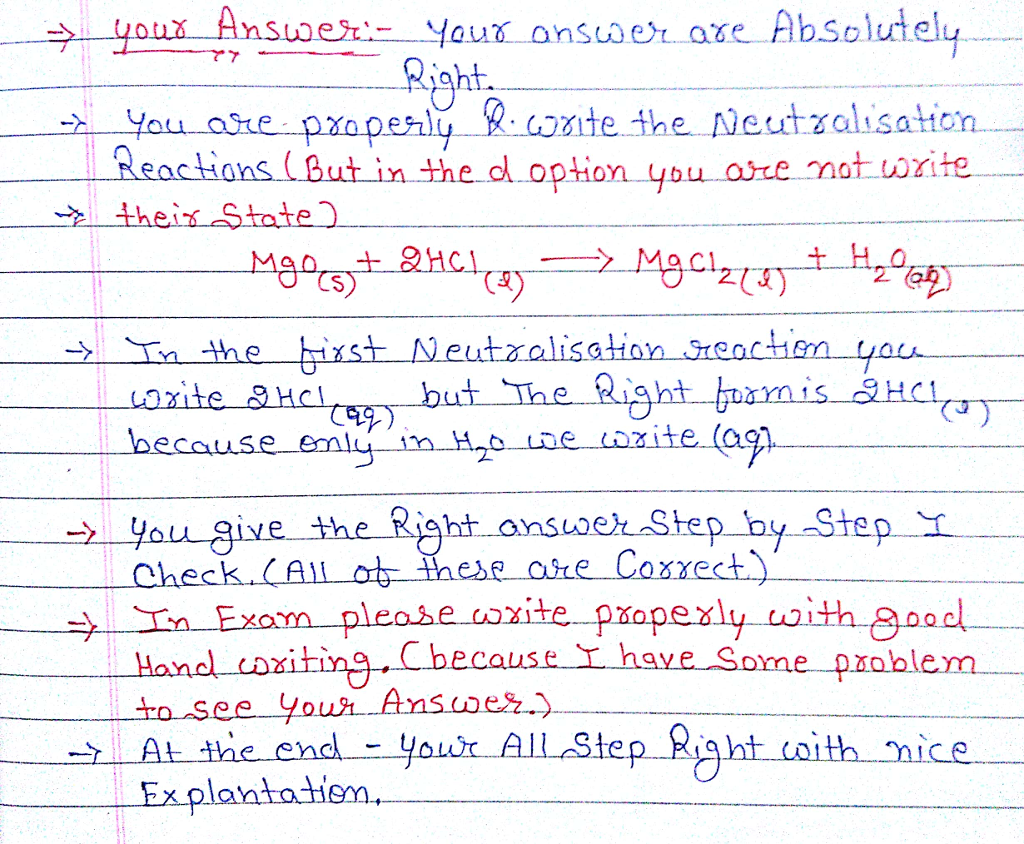 ⇒ your Answer:- Your answer are Absolutely
Right.
→ You are properly R. write the Neutralisation
Reactions (But in the d option you are not write
→ their State)
MgO(s) + 2HCl(l) → MgCl2(l) + H2O(aq)
→ In the first Neutralisation reaction you
write 2HCl(aq) but The Right form is 2HCl(l)
because only in H2O we write (aq).
→ You give the Right answer Step by Step I
Check. (All of these are Correct.)
⇒ In Exam please write properly with good
Hand writing. (because I have Some problem
to see Your Answer.)
→ At the end - Your All Step Right with nice
Explantation.